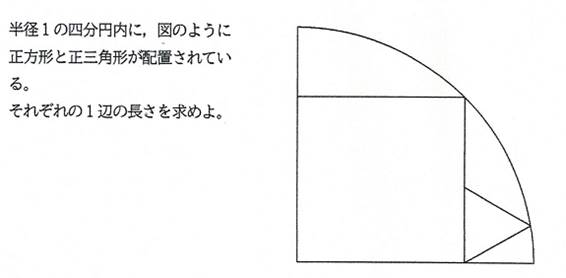 半径1の四分円内に，図のように
正方形と正三角形が配置されてい
る。
それぞれの1辺の長さを求めよ。